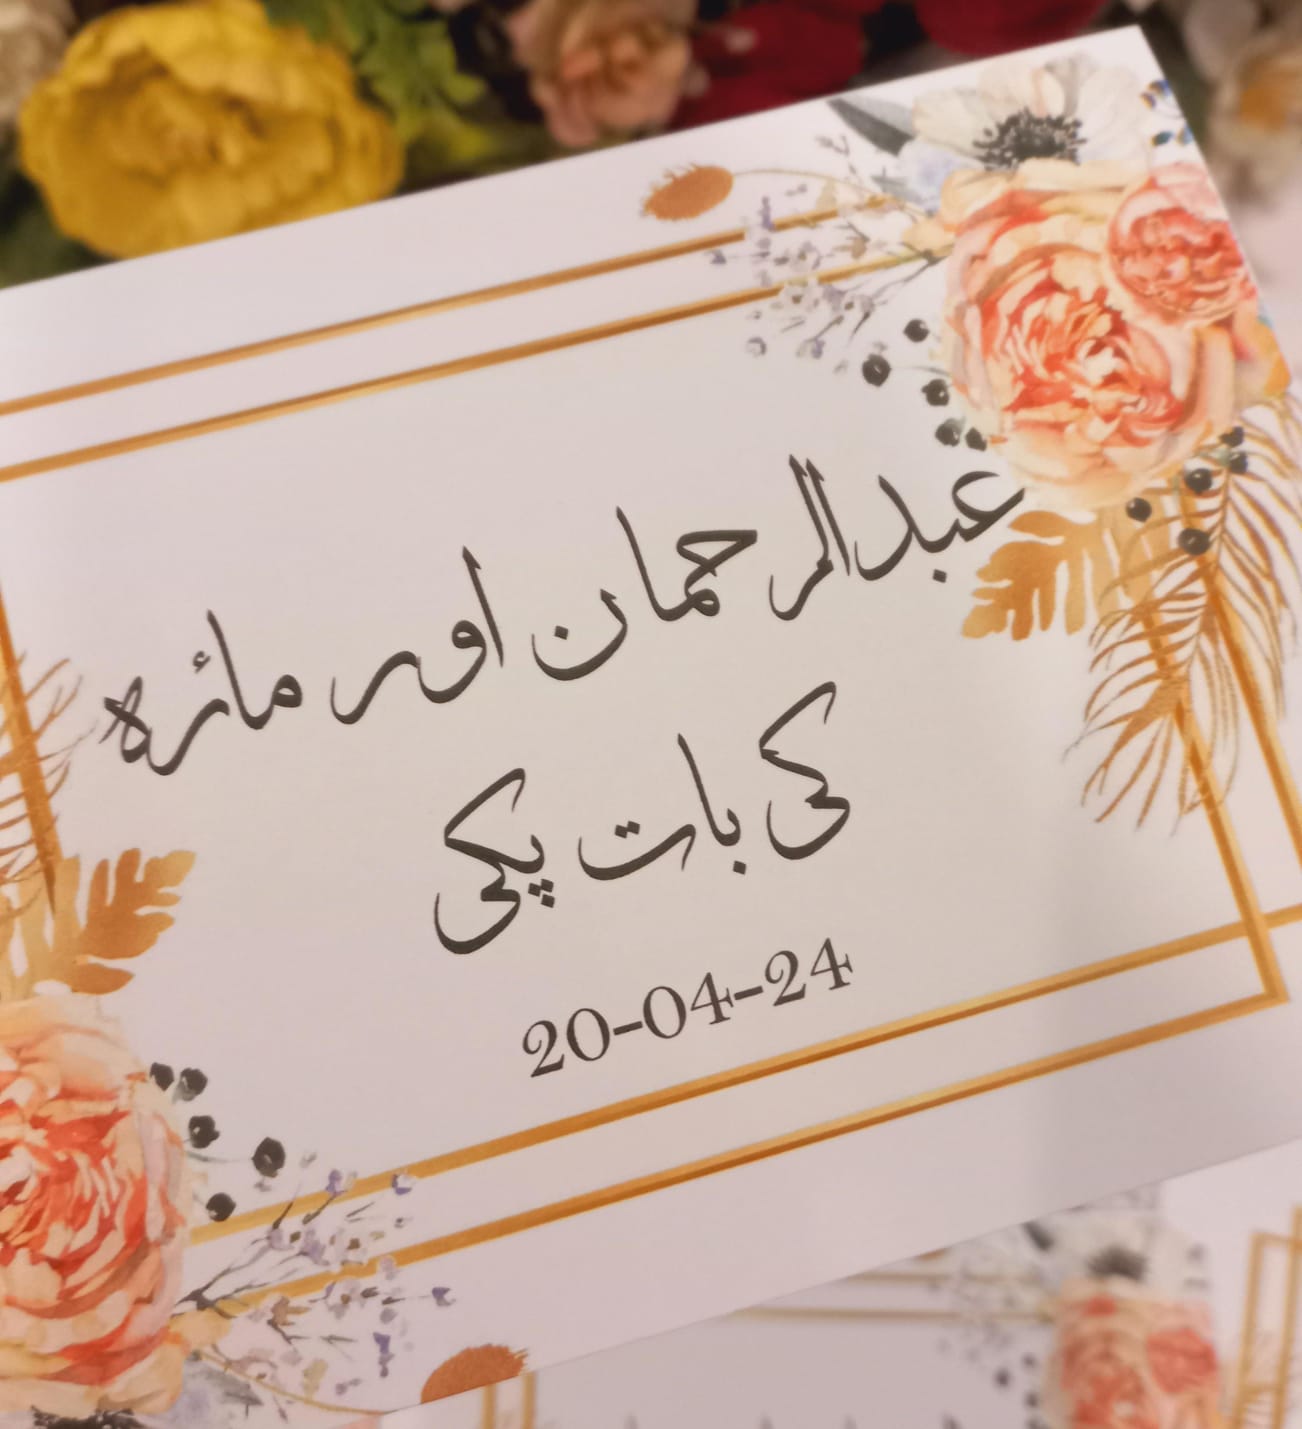 عبدالرحمان اور مائرہ
کی بات پکی
20-04-24